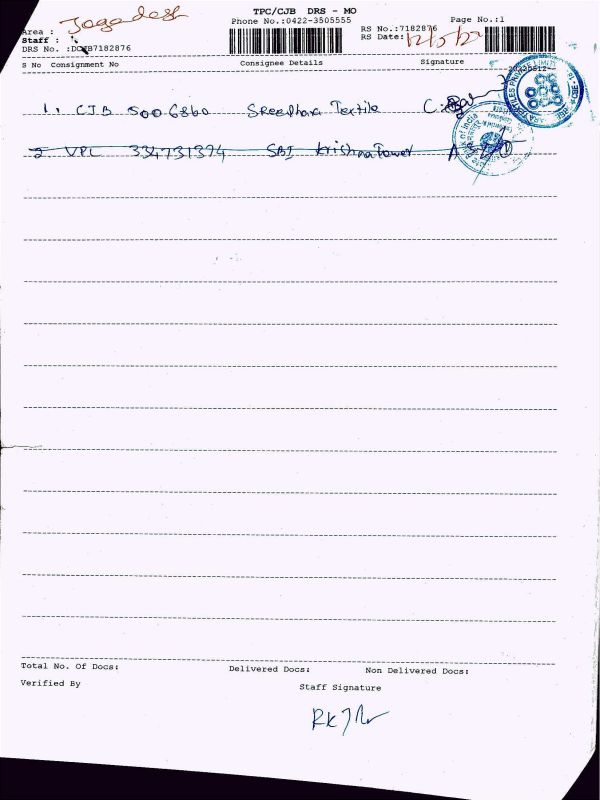 TPC/CJB DRS - MO
Phone No.:0422-3505555 Page No.:1
Area :
RS No.:7182876
Staff :
RS Date: 12/5/22
DRS No. :DCJB7182876
S No Consignment No Consignee Details Signature
1. CJB 5006860 Sreedhara Textile
2 VPL 334731394 SBI Krishna Tower
Total No. Of Docs: Delivered Docs: Non Delivered Docs:
Verified By Staff Signature